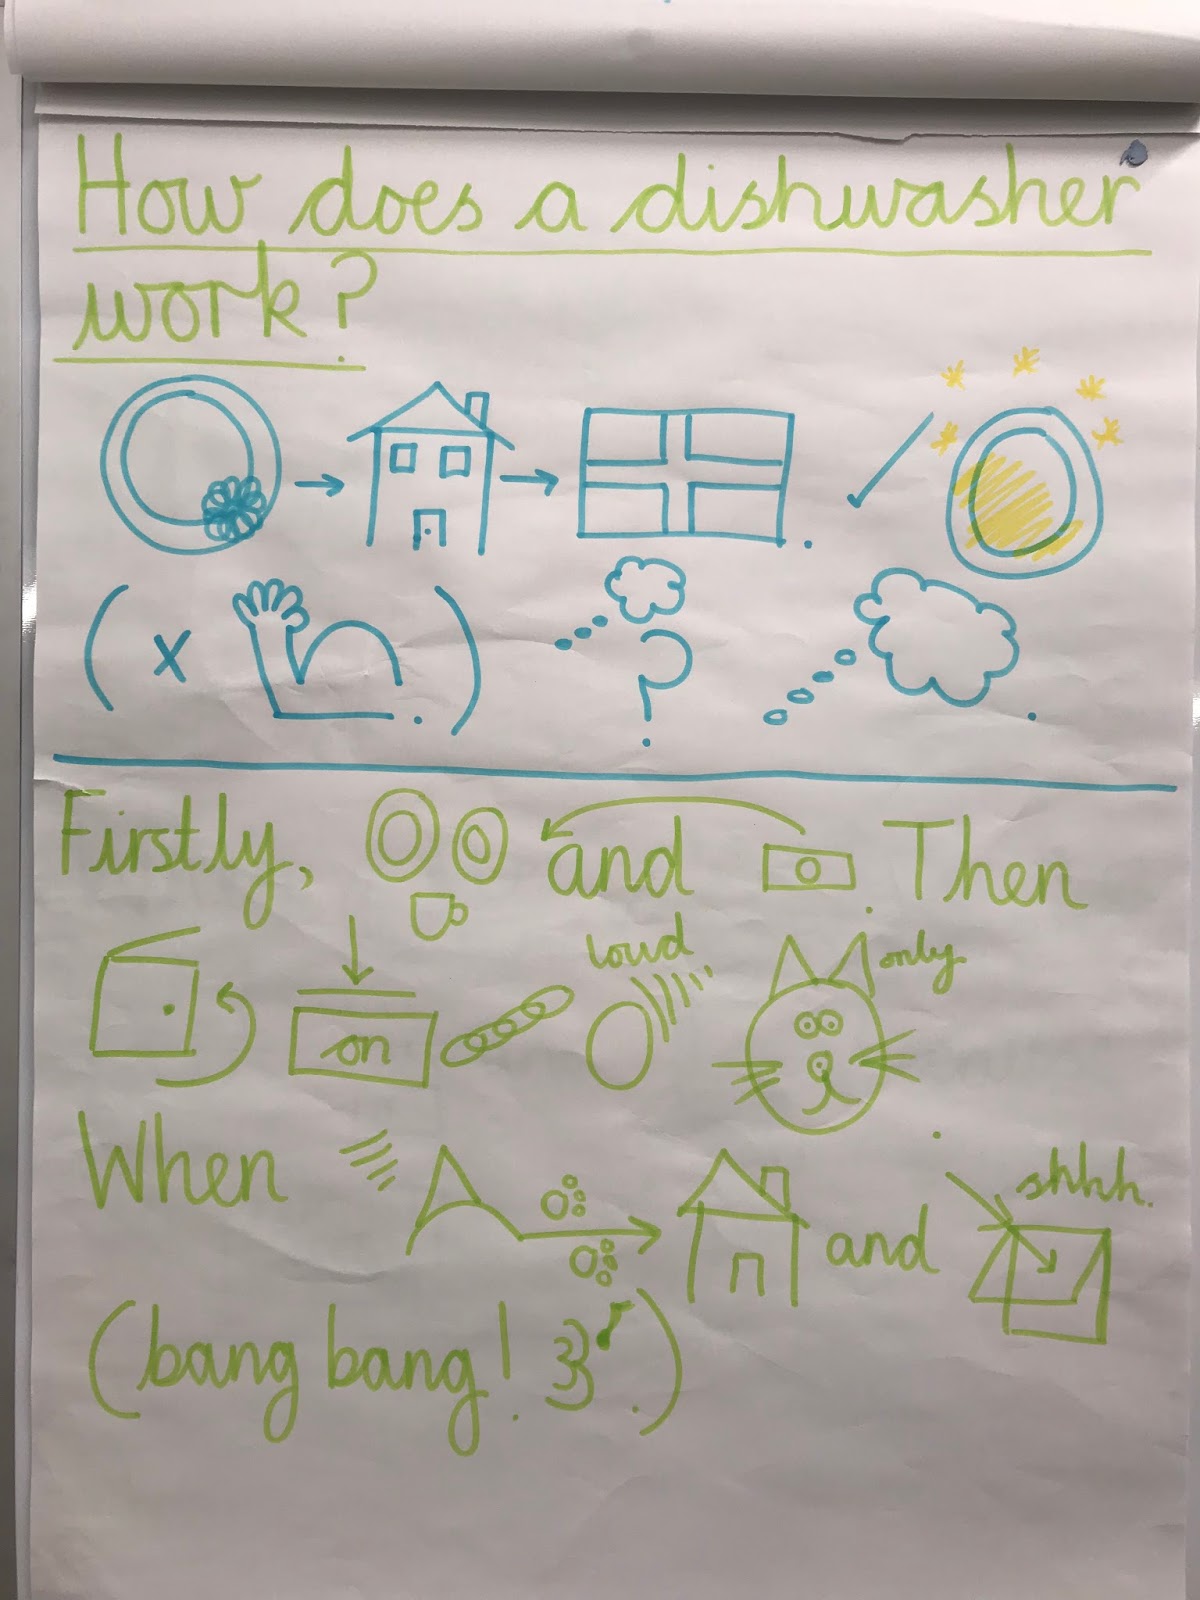 How does a dishwasher
work?
( x )
?
Firstly, and . Then
loud
only
on
When
and
shhh.
(bang bang! )